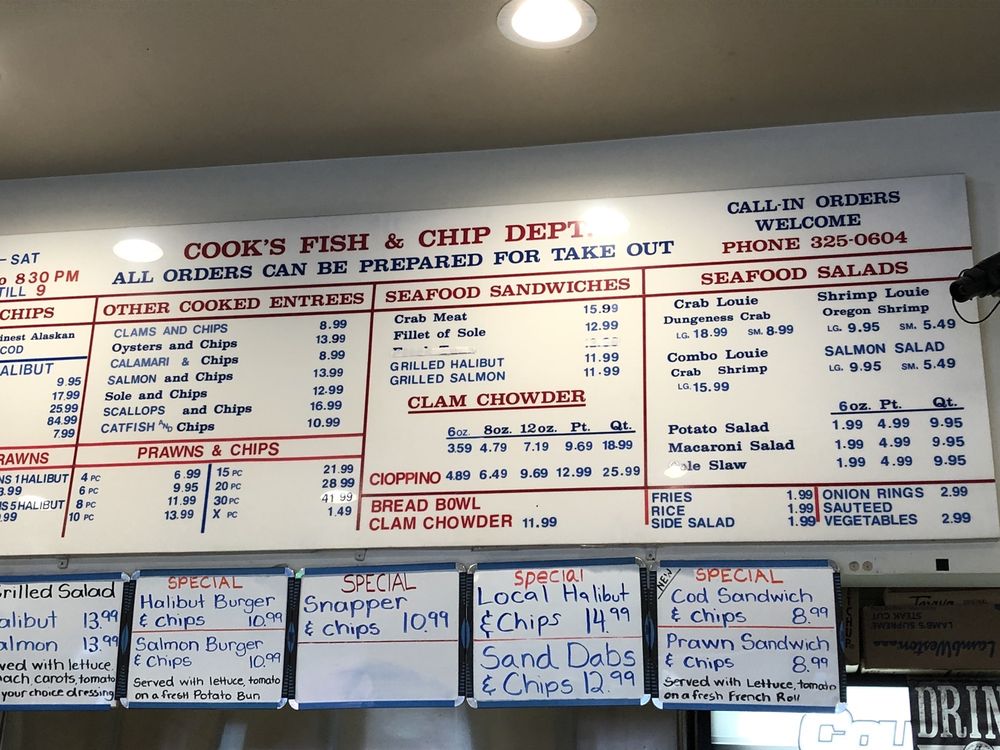 - SAT
o 8:30 PM
TILL 9
COOK'S FISH & CHIP DEPT.
ALL ORDERS CAN BE PREPARED FOR TAKE OUT
CALL-IN ORDERS
WELCOME
PHONE 325-0604
CHIPS
inest Alaskan
COD
ALIBUT
9.95
17.99
25.99
84.99
7.99
RAWNS
NS 1 HALIBUT
3.99
NS 5 HALIBUT
.99
OTHER COOKED ENTREES
CLAMS AND CHIPS 8.99
Oysters and Chips 13.99
CALAMARI & Chips 8.99
SALMON and Chips 13.99
Sole and Chips 12.99
SCALLOPS and Chips 16.99
CATFISH AND Chips 10.99
PRAWNS & CHIPS
4 PC 6.99 15 PC 21.99
6 PC 9.95 20 PC 28.99
8 PC 11.99 30 PC 41.99
10 PC 13.99 X PC 1.49
SEAFOOD SANDWICHES
Crab Meat 15.99
Fillet of Sole 12.99
GRILLED HALIBUT 11.99
GRILLED SALMON 11.99
CLAM CHOWDER
6oz. 8oz. 12oz. Pt. Qt.
3.59 4.79 7.19 9.69 18.99
CIOPPINO 4.89 6.49 9.69 12.99 25.99
BREAD BOWL
CLAM CHOWDER 11.99
SEAFOOD SALADS
Crab Louie
Dungeness Crab
LG. 18.99 SM. 8.99
Shrimp Louie
Oregon Shrimp
LG. 9.95 SM. 5.49
Combo Louie
Crab Shrimp
LG. 15.99
SALMON SALAD
LG. 9.95 SM. 5.49
6oz. Pt. Qt.
Potato Salad 1.99 4.99 9.95
Macaroni Salad 1.99 4.99 9.95
ole Slaw 1.99 4.99 9.95
FRIES 1.99
RICE 1.99
SIDE SALAD 1.99
ONION RINGS 2.99
SAUTEED
VEGETABLES 2.99
rilled Salad
alibut 13.99
almon 13.99
ved with lettuce,
nach carots, tomato
your choice dressing
SPECIAL
Halibut Burger
& chips 10.99
Salmon Burger
& Chips 10.99
Served with lettuce, tomato
on a fresh Potato Bun
SPECIAL
Snapper
& chips 10.99
Special
Local Halibut
& Chips 14.99
Sand Dabs
& Chips 12.99
NEW
SPECIAL
Cod Sandwich
& Chips 8.99
Prawn Sandwich
& Chips 8.99
Served with Lettuce, tomato
on a fresh French Roll
LAMB'S SUPREME
STEAK CUT
LambWeston
DRIN